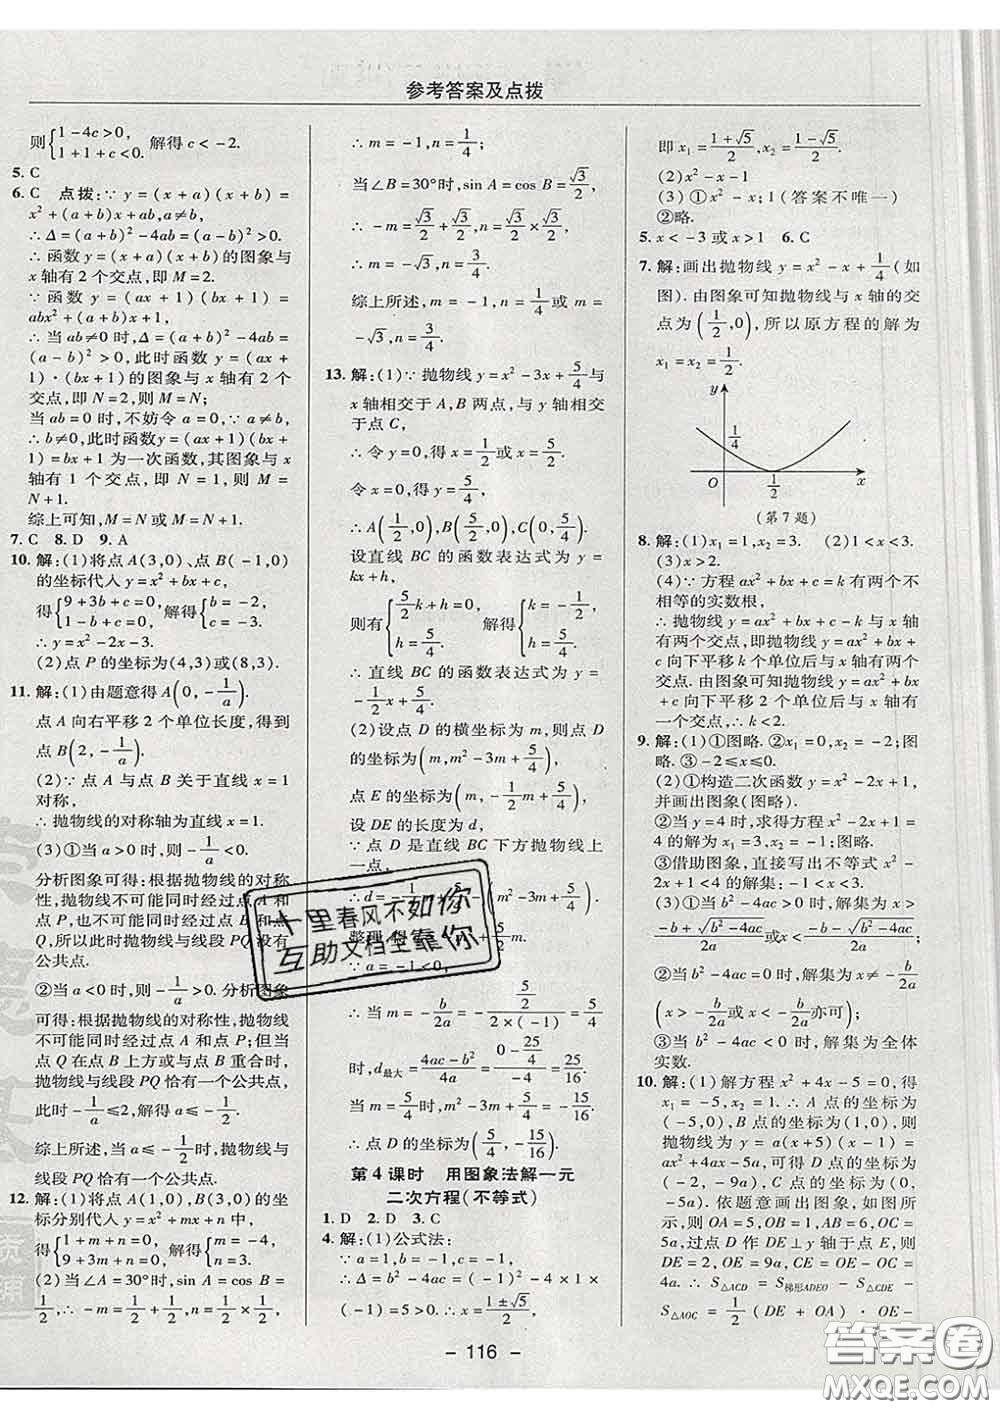 参考答案及点拨
则{1-4c>0, 1+1+c<0. 解得 c<-2.
5. C
6. C 点拨:∵ y=(x+a)(x+b)=
x²+(a+b)x+ab,a≠b,
∴Δ=(a+b)²-4ab=(a-b)²>0.
∴函数 y=(x+a)(x+b)的图象与
x 轴有 2 个交点,即 M=2.
∵函数 y=(ax+1)(bx+1)=
abx²+(a+b)x+1,
∴当 ab≠0 时,Δ=(a+b)²-4ab=
(a-b)²>0,此时函数 y=(ax+
1)·(bx+1)的图象与 x 轴有 2 个
交点,即 N=2,则 M=N;
当 ab=0 时,不妨令 a=0,∵a≠b,
∴b≠0,此时函数y=(ax+1)(bx+
1)=bx+1 为一次函数,其图象与 x
轴有 1 个交点,即 N=1,则 M=
N+1.
综上可知,M=N 或 M=N+1.
7. C 8. D 9. A
10. 解:(1)将点A(3,0)、点B(-1,0)
的坐标代入 y=x²+bx+c,
得{9+3b+c=0, 1-b+c=0, 解得{b=-2, c=-3.
∴y=x²-2x-3.
(2)点 P 的坐标为(4,3)或(8,3).
11. 解:(1)由题意得A(0,-1/a).
点 A 向右平移 2 个单位长度,得到
点 B(2,-1/a).
(2)∵点 A 与点 B 关于直线 x=1
对称,
∴抛物线的对称轴为直线 x=1.
(3)①当 a>0 时,则-1/a<0.
分析图象可得:根据抛物线的对称
性,抛物线不可能同时经过点 A 和
点 P,也不可能同时经过点 B 和点
Q,所以此时抛物线与线段PQ没有
公共点.
②当 a<0 时,则-1/a>0. 分析图象
可得:根据抛物线的对称性,抛物线
不可能同时经过点 A 和点 P;但当
点 Q 在点 B 上方或与点 B 重合时,
抛物线与线段 PQ 恰有一个公共点,
此时-1/a≤2,解得 a≤-1/2.
综上所述,当a≤-1/2时,抛物线与
线段 PQ 恰有一个公共点.
12. 解:(1)将点 A(1,0),B(3,0)的坐
标分别代入 y=x²+mx+n 中,
得{1+m+n=0, 9+3m+n=0, 解得{m=-4, n=3.
(2)当∠A=30°时,sin A=cos B=
1/2, ∴-m=1/2+1/2,n=1/2×1/2,
∴m=-1,n=1/4;
当∠B=30°时,sin A=cos B=√3/2,
∴-m=√3/2+√3/2,n=√3/2×√3/2,
∴m=-√3,n=3/4.
综上所述,m=-1,n=1/4或 m=
-√3,n=3/4.
13. 解:(1)∵抛物线 y=x²-3x+5/4与
x 轴相交于 A,B 两点,与 y 轴相交
于点 C,
∴令 y=0,得 x=1/2或 x=5/2.
令 x=0,得 y=5/4,
∴A(1/2,0),B(5/2,0),C(0,5/4).
设直线 BC 的函数表达式为 y=
kx+h,
则有{5/2k+h=0, h=5/4, 解得{k=-1/2, h=5/4.
∴直线 BC 的函数表达式为 y=
-1/2x+5/4.
(2)设点 D 的横坐标为 m,则点 D
的坐标为(m,m²-3m+5/4),
点 E 的坐标为(m,-1/2m+5/4).
设 DE 的长度为 d,
∵点 D 是直线 BC 下方抛物线上
一点,
∴d= 5/4-(m²-3m+5/4),
整理,得 5/2m.
∵a=-1<0,
∴当 m=-b/2a=-(5/2)/(2×(-1))=5/4
时,d最大=(4ac-b²)/4a=(0-25/4)/-4=25/16.
当 m=5/4时,y=25/16-15/4+5/4=-15/16.
∴点 D 的坐标为(5/4,-15/16).
第 4 课时 用图象法解一元
二次方程(不等式)
1. D 2. D 3. C
4. 解:(1)公式法:
∵a=1,b=-1,c=-1,
∴Δ=b²-4ac=(-1)²-4×1×
(-1)=5>0. ∴x=(1±√5)/2,
即 x₁=(1+√5)/2,x₂=(1-√5)/2.
(2)x²-x-1
(3)①x²-x;1(答案不唯一)
②略.
5. x<-3 或 x>1 6. C
7. 解:画出抛物线 y=x²-x+1/4(如
图). 由图象可知抛物线与 x 轴的交
点为(1/2,0),所以原方程的解为
x₁=x₂=1/2.
y
1/4
O 1/2 x
(第 7 题)
8. 解:(1)x₁=1,x₂=3. (2)1<x<3.
(3)x>2.
(4)∵方程 ax²+bx+c=k 有两个不
相等的实数根,
∴抛物线 y=ax²+bx+c-k 与 x 轴
有两个交点,即抛物线 y=ax²+bx+
c 向下平移 k 个单位后与 x 轴有两个
交点. 由图象可知抛物线 y=ax²+bx+
c 向下平移 2 个单位后,与 x 轴有
一个交点,∴k<2.
9. 解:(1)①图略. ②x₁=0,x₂=-2;图
略. ③-2≤x≤0.
(2)①构造二次函数 y=x²-2x+1,
并画出图象(图略).
②当 y=4 时,求得方程 x²-2x+1=
4 的解为 x₁=3,x₂=-1.
③借助图象,直接写出不等式 x²-
2x+1<4 的解集:-1<x<3.
(3)①当 b²-4ac>0 时,解集为 x
>(-b+√(b²-4ac))/2a或 x<(-b-√(b²-4ac))/2a;
②当 b²-4ac=0 时,解集为x≠-b/2a
(x>-b/2a或 x<-b/2a亦可);
③当 b²-4ac<0 时,解集为全体
实数.
10. 解:(1)解方程 x²+4x-5=0,得
x₁=-5,x₂=1. ∴A 点的坐标为
(-5,0),B 点的坐标为(1,0).
抛物线为 y=a(x+5)(x-1)=
ax²+4ax-5a. ∴C 点的坐标为(0,
-5a). 依题意画出图象,如图所
示,则 OA=5,OB=1,AB=6,OC=
5a,过点 D 作 DE⊥y 轴于点 E,则
DE=2,OE=9a,CE=OE-OC=
4a. ∴S△ACD=S梯形ADEO-S△CDE-
S△AOC=1/2(DE+OA)·OE-
十里春风不如你
互助文档全靠你
- 116 -
答案圈
MXQE.COM